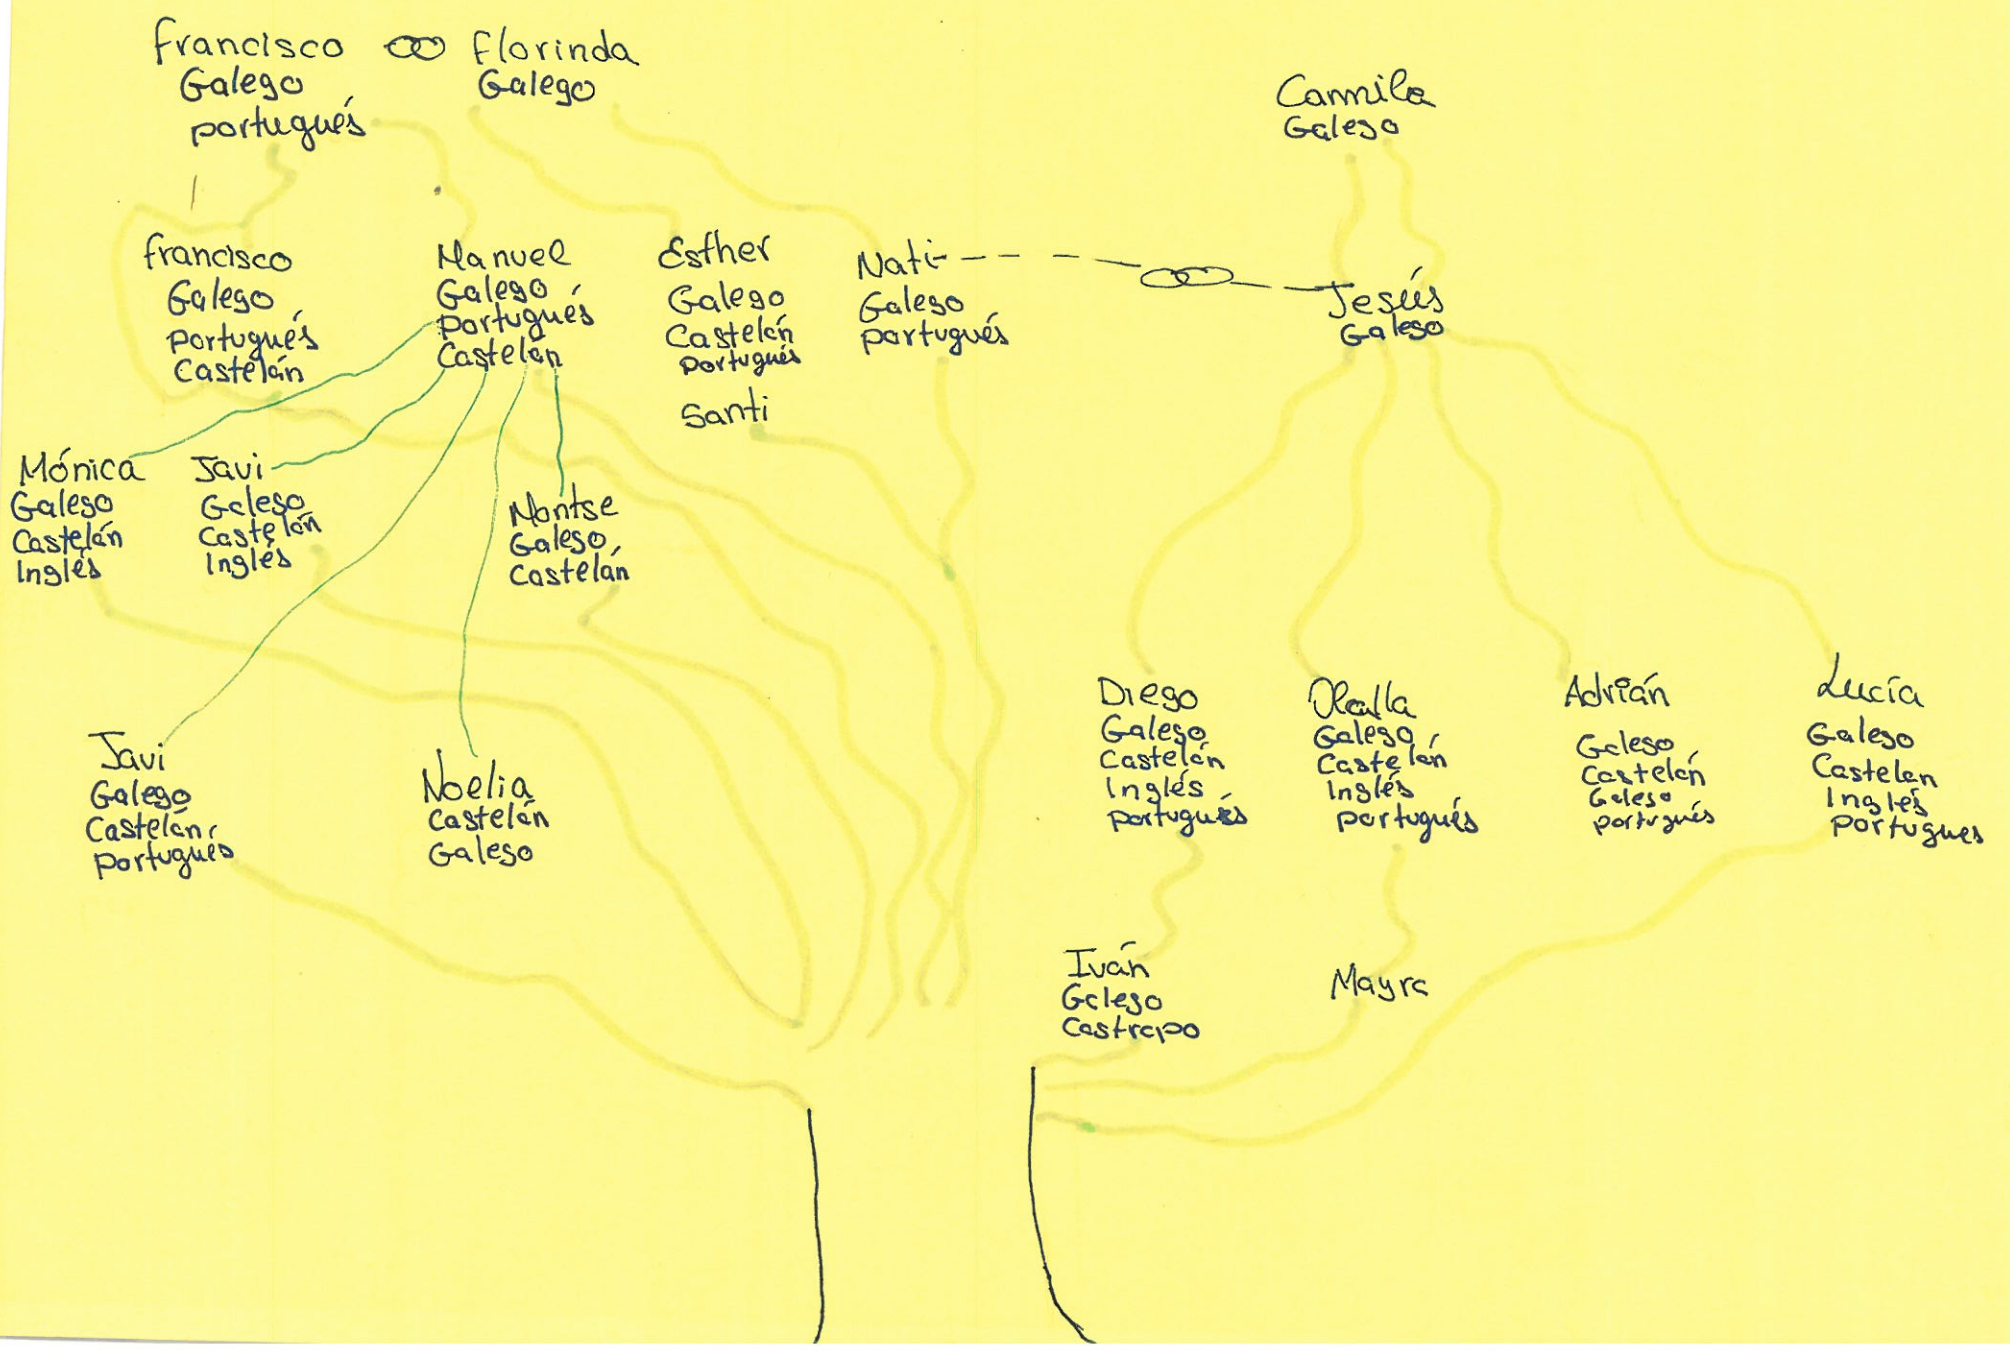 Francisco ∞ Florinda
Galego
portugués
Galego
Camila
Galego
Francisco
Galego
Portugués
Castelán
Manuel
Galego
Portugués
Castelán
Esther
Galego
Castelán
Portugués
Santi
Nati
Galego
portugués
Jesús
Galego
Mónica
Galego
Castelán
Inglés
Javi
Galego
Castelán
Inglés
Montse
Galego
Castelán
Javi
Galego
Castelán
Portugués
Noelia
Castelán
Galego
Diego
Galego
Castelán
Inglés
portugués
Olalla
Galego
Castelán
Inglés
portugués
Adrián
Galego
Castelán
Galego
portugués
Lucía
Galego
Castelan
Inglés
Portugues
Iván
Galego
Castrapo
Mayra